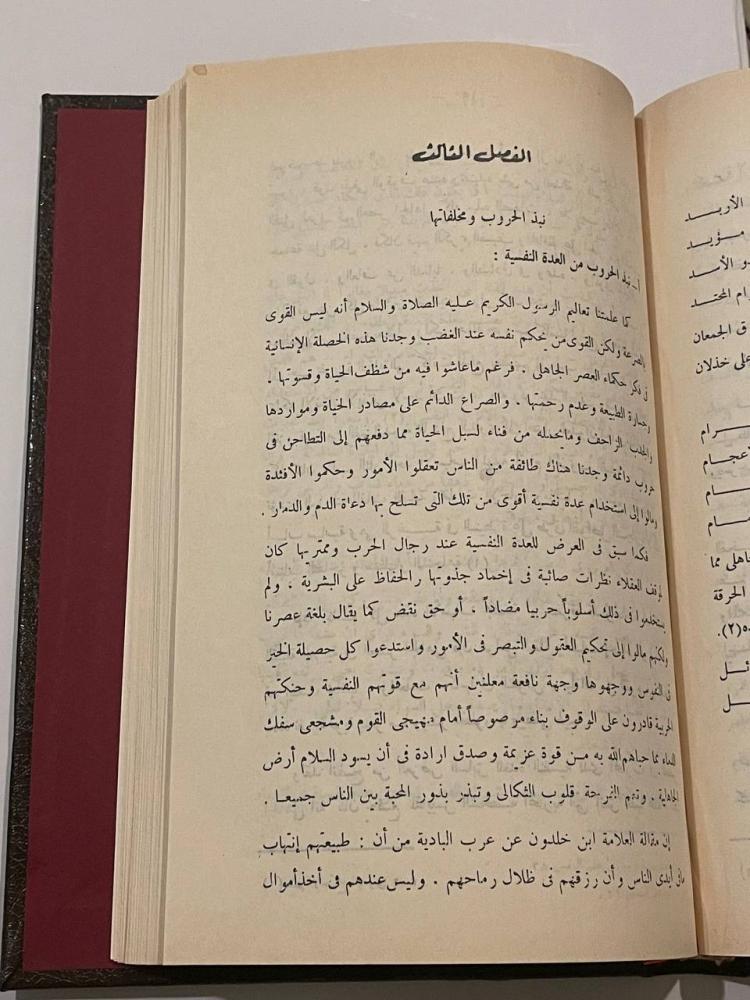 الفصل الثالث
نبذ الحروب ومخلفاتها
أ_ نبذ الحروب من العدة النفسية :
كما علمتنا تعاليم الرسول الكريم عليه الصلاة والسلام أنه ليس القوى
بالصرعة ولكن القوى من يحكم نفسه عند الغضب وجدنا هذه الخصلة الإنسانية
فى فكر حكماء العصر الجاهلى . فرغم ماعاشوا فيه من شظف الحياة وقسوتها .
وضارة الطبيعة وعدم رحمتها . والصراع الدائم على مصادر الحياة ومواردها
والجدب الزاحف ومايحمله من فناء لسبل الحياة مما دفعهم إلى التطاحن فى
حروب دائمة وجدنا هناك طائفة من الناس تعقلوا الأمور وحكموا الأفئدة
ومالوا إلى استخدام عدة نفسية أقوى من تلك التى تسلح بها دعاة الدم والدمار .
فكما سبق فى العرض للعدة النفسية عند رجال الحرب ومميزيها كان
العقلاء نظرات صائبة فى إخماد جذوتها والحفاظ على البشرية . ولم
يستخدموا فى ذلك أسلوباً حربيا مضاداً . أو حق نقض كما يقال بلغة عصرنا
ولكنهم مالوا إلى تحكيم العقول والتبصر فى الأمور واستدعوا كل حصيلة الخير
فى النفوس ووجهوها وجهة نافعة معلنين أنهم مع قوتهم النفسية وحنكتهم
الحربية قادرون على الوقوف بناء مرصوصاً أمام مهيجى القوم ومشجعى سفك
الدماء بما حباهم الله به من قوة عزيمة وصدق ارادة فى أن يسود السلام أرض
الجاهلية . وتعم الفرحة قلوب الثكالى وتبذر بذور المحبة بين الناس جميعا .
إن مقالة العلامة ابن خلدون عن عرب البادية من أن : طبيعتهم إنتهاب
مافى أيدى الناس وأن رزقهم فى ظلال رماحهم . وليس عندهم فى أخذ أموال
الأربد
مؤيد
الأسد
المحتد
الجمعان
على خذلان
رام
عجام
ام
ام
مما
الحرقة
(٢).